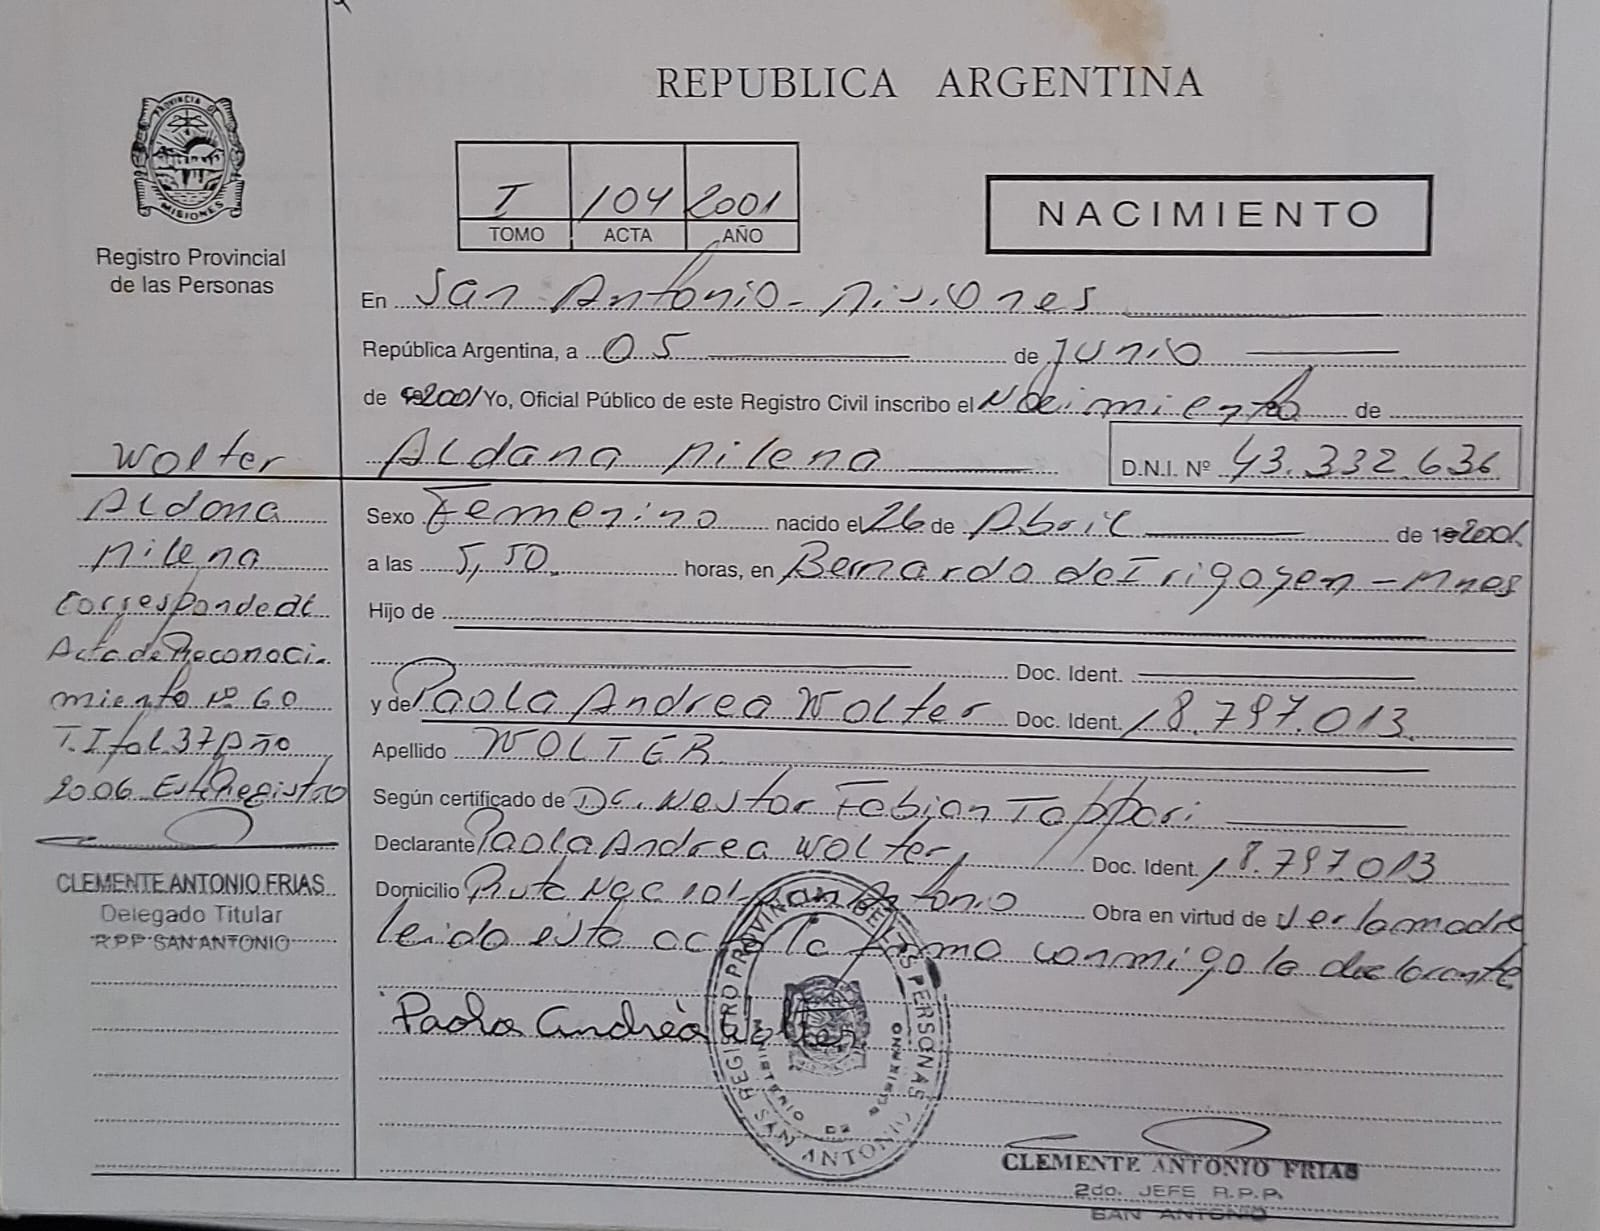 REPUBLICA ARGENTINA
PROVINCIA DE
MISIONES
Registro Provincial
de las Personas
I 104 2001
TOMO ACTA AÑO
NACIMIENTO
En San Antonio - Misiones
República Argentina, a 05 de Junio
de 2001 Yo, Oficial Público de este Registro Civil inscribo el Nacimiento de
Aldana Milena D.N.I. Nº 43.332.636
Sexo Femenino nacido el 26 de Abril de 2001
a las 5,50 horas, en Bernardo de Irigoyen - Mnes
Hijo de
Doc. Ident.
y de Paola Andrea Wolter Doc. Ident. 18.797.013
Apellido WOLTER
Según certificado de Dr. Nestor Fabian
Declarante Paola Andrea Wolter, Doc. Ident. 18.797.013
Domicilio Ruta Nac 101 San Antonio Obra en virtud de ser la madre
leido esta acta la firma conmigo la declarante
Paola Andrea Wolter
Wolter
Aldana
Milena
Corresponde al
Acta de Reconoci-
miento Nº 60
T. I fol. 37 Año
2006 Este Registro
CLEMENTE ANTONIO FRIAS
Delegado Titular
R.P.P. SAN ANTONIO
REGISTRO PROVINCIAL DE LAS PERSONAS
MINISTERIO DE GOBIERNO
SAN ANTONIO
CLEMENTE ANTONIO FRIAS
2do. JEFE R.P.P.
SAN ANTONIO